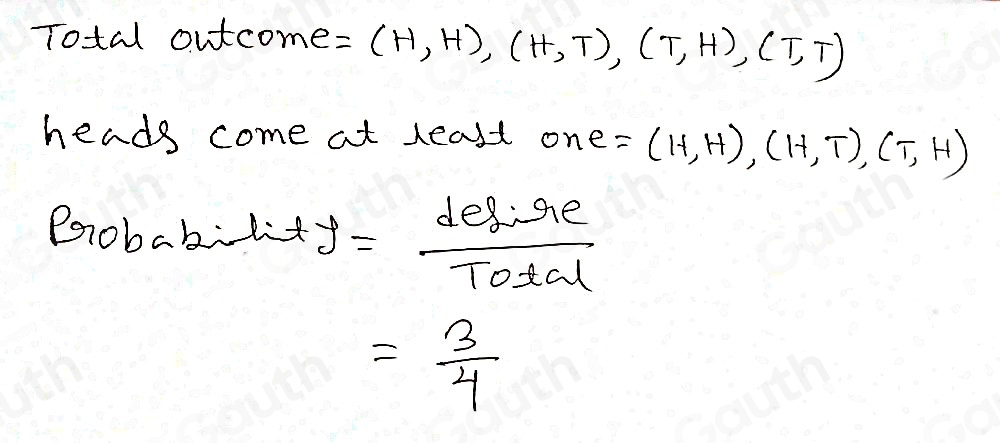 Total outcome= (H, H), (H, T), (T, H), (T, T)
heads come at least one= (H, H), (H, T), (T, H)
Probability= desire
Total
= 3
4